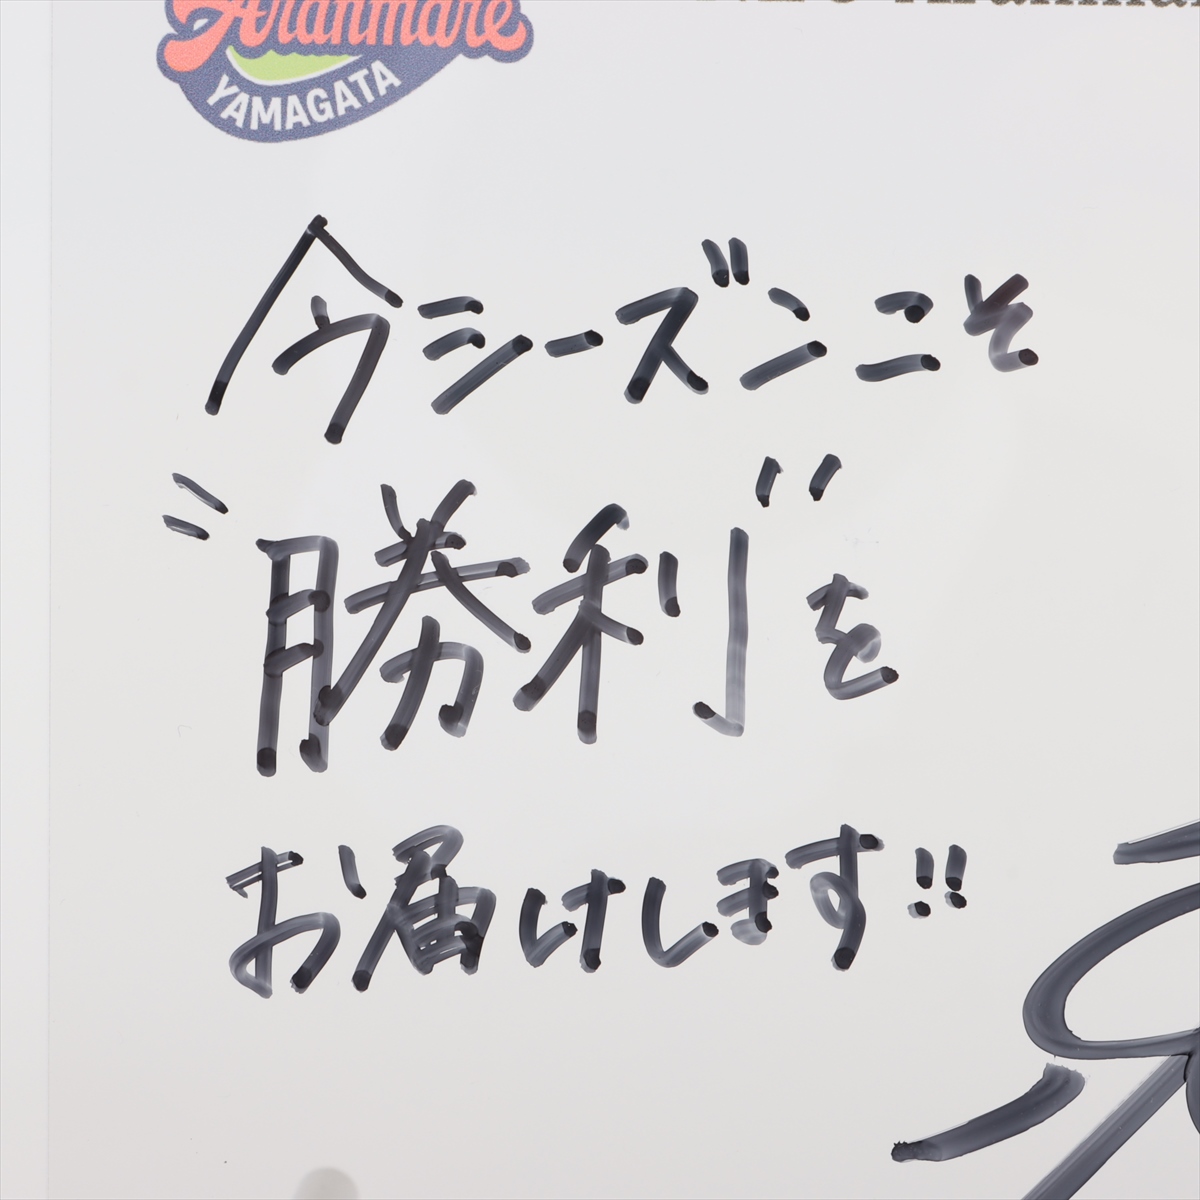 Aranmare
YAMAGATA
今シーズンこそ
"勝利"を
お届けします!!